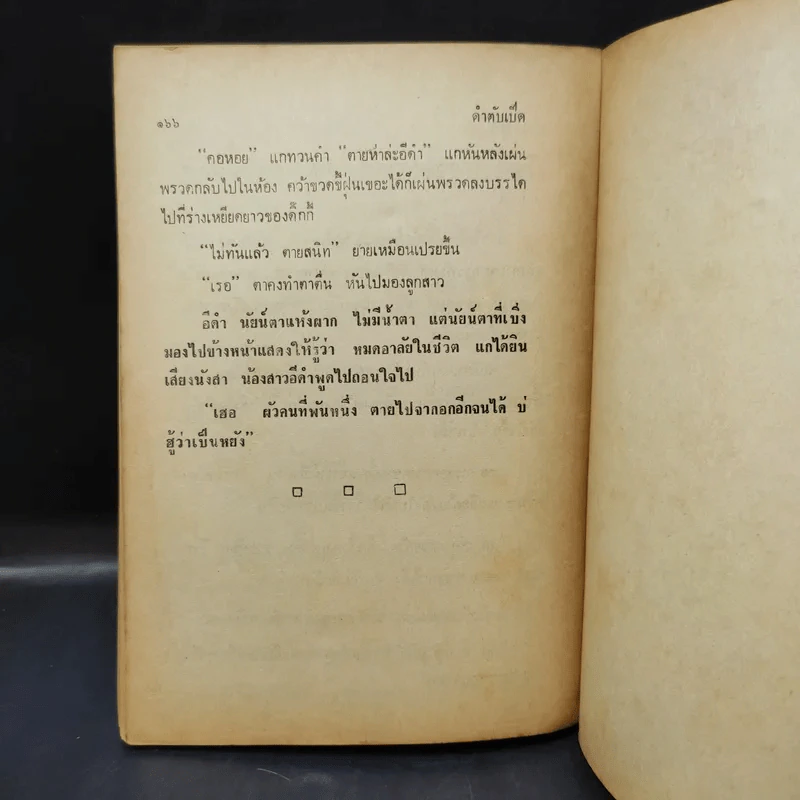 ๑๖๖ ดำตับเป็ด
“คอหอย” แกทวนคำ “ตายห่าล่ะอีดำ” แกหันหลังเผ่น
พรวดกลับไปในห้อง คว้าขวดขี้ฝุ่นเขอะได้ก็เผ่นพรวดลงบรรได
ไปที่ร่างเหยียดยาวของดิ๊กกี้
“ไม่ทันแล้ว ตายสนิท” ยายเหมือนเปรยขึ้น
“เรอ” ตาคงทำตาตื่น หันไปมองลูกสาว
อีดำ นัยน์ตาแห้งผาก ไม่มีน้ำตา แต่นัยน์ตาที่เบิ่ง
มองไปข้างหน้าแสดงให้รู้ว่า หมดอาลัยในชีวิต แกได้ยิน
เสียงนังสา น้องสาวอีดำพูดไปถอนใจไป
“เฮอ ผัวคนที่พันหนึ่ง ตายไปจากอกอีกจนได้ บ่
ฮู้ว่าเป็นหยัง”